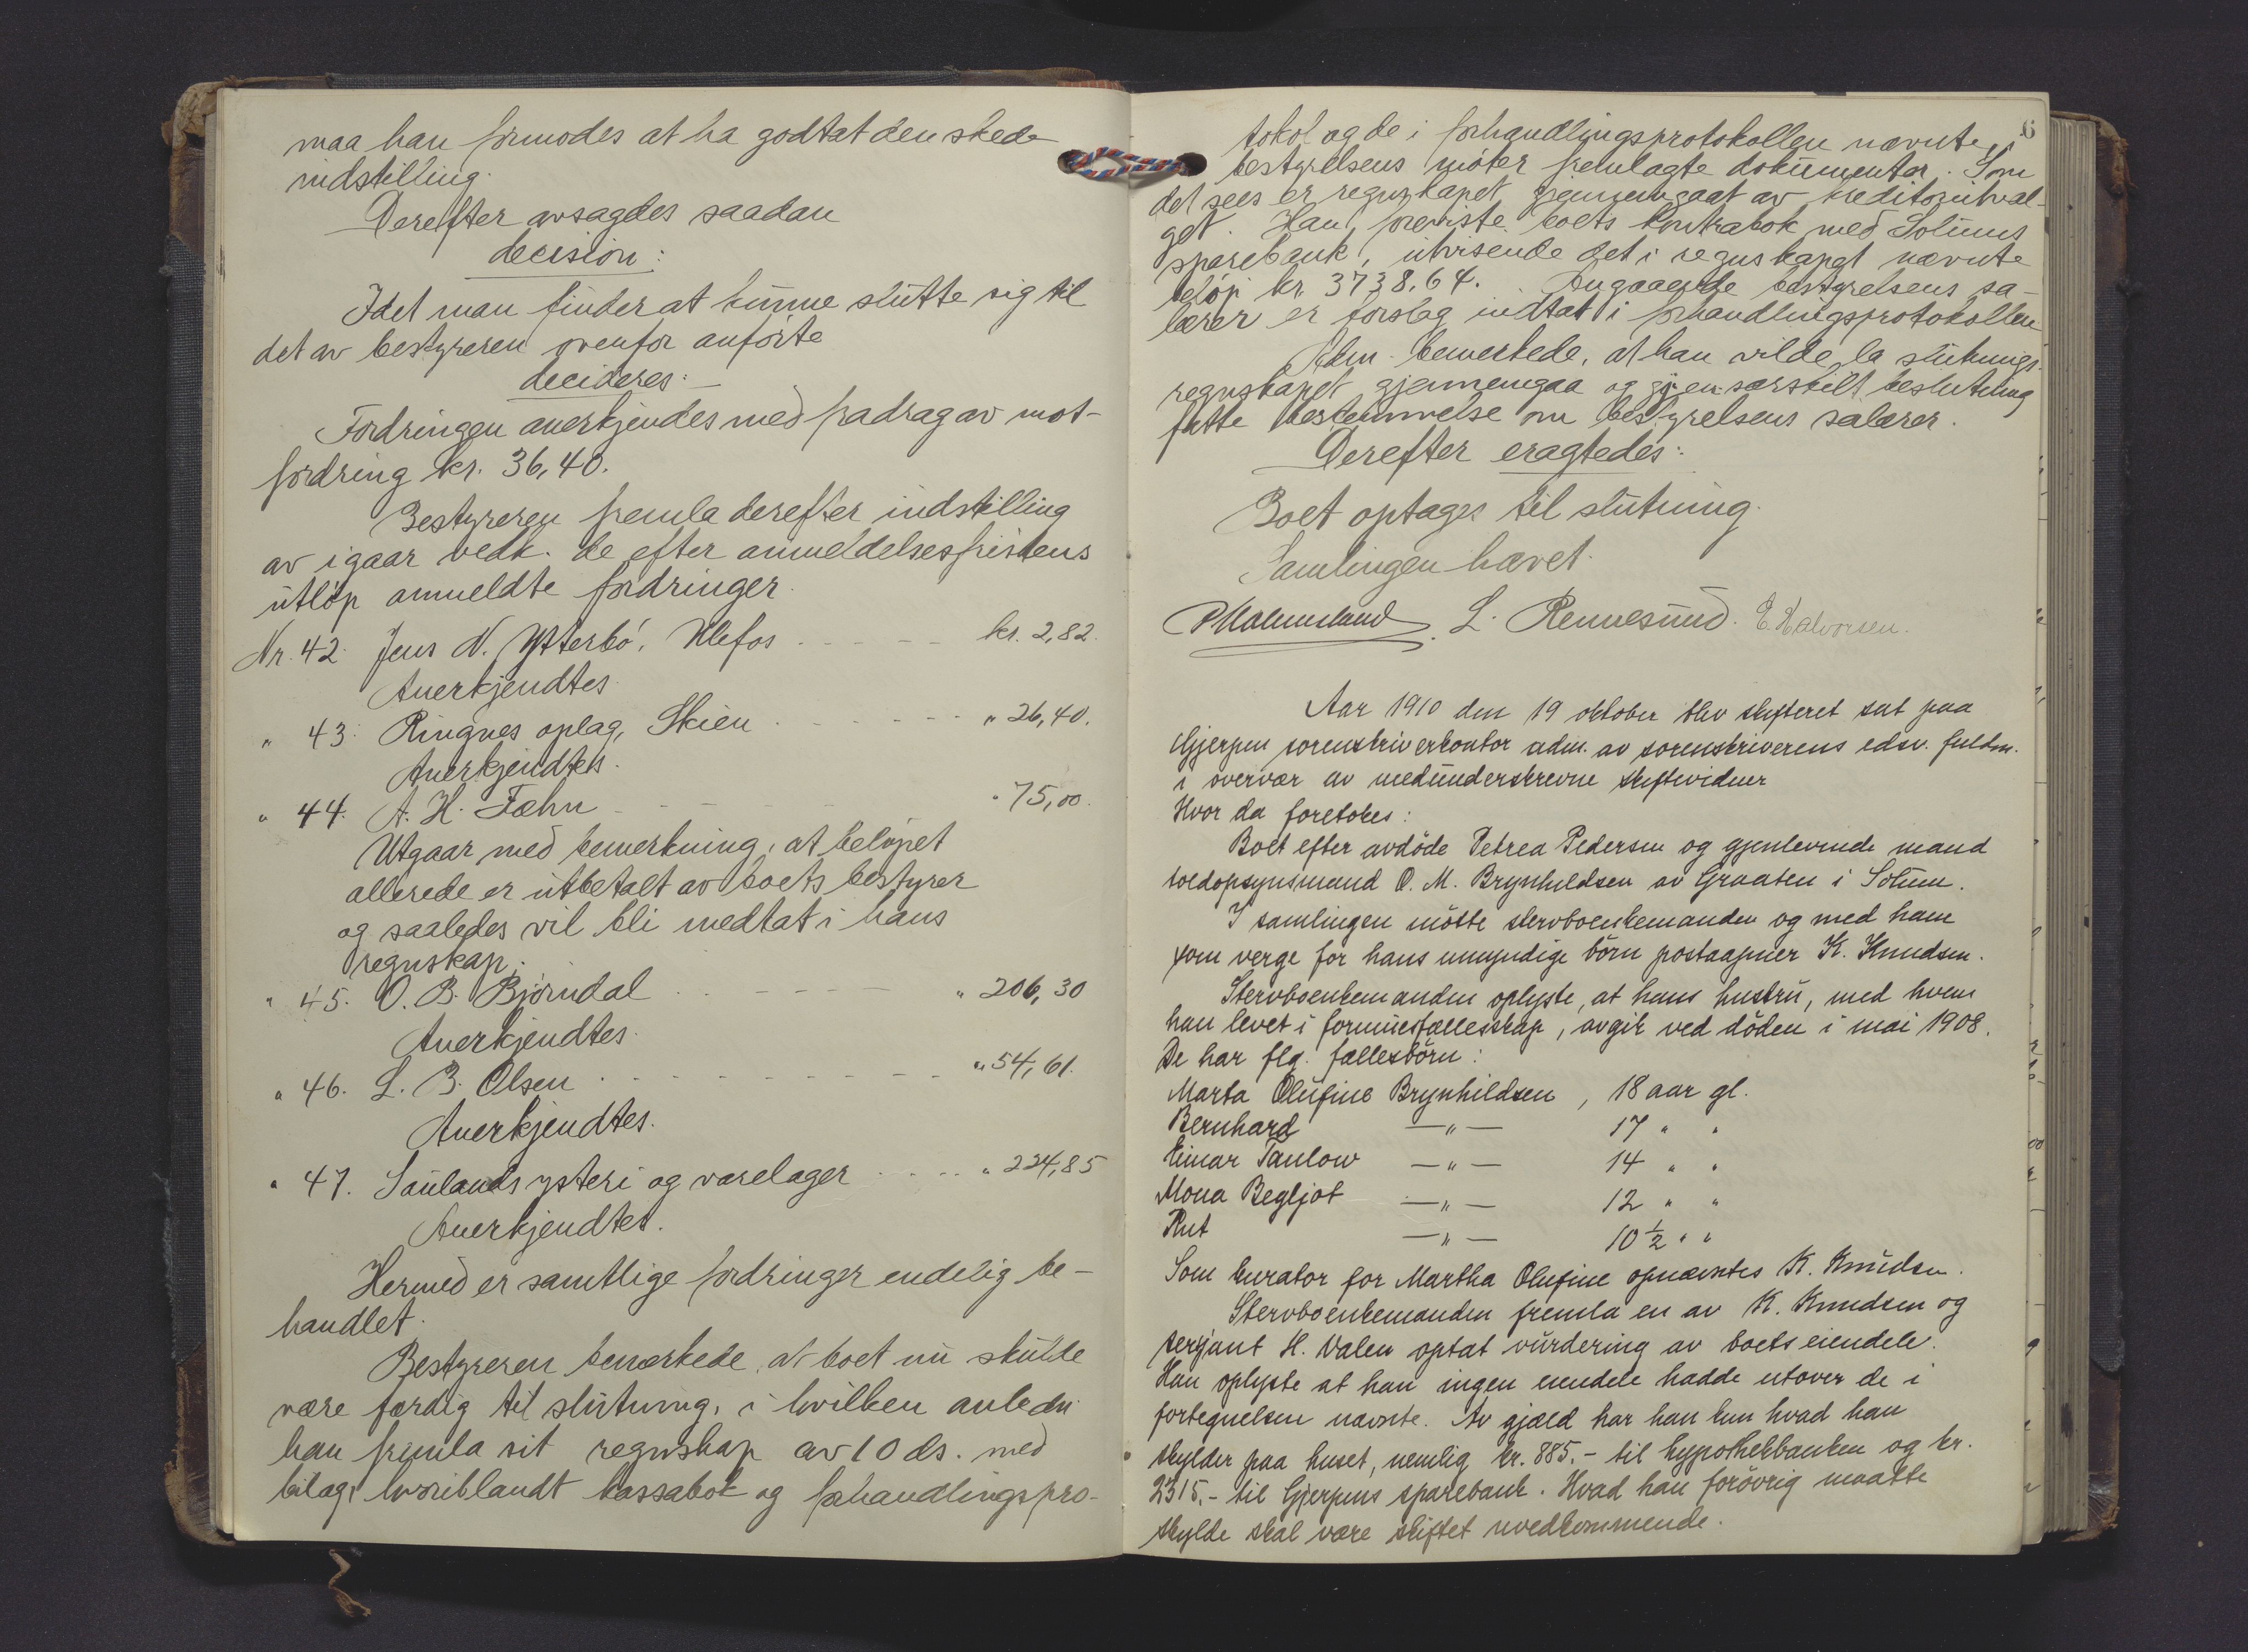 maa han formodes at ha godtat den skede
indstilling.
Derefter avsagdes saadan
decision:
Idet man finder at kunne slutte sig til
det av bestyreren ovenfor anførte
decideres:
Fordringen anerkjendes med fradrag av mot-
fordring kr. 36,40.
Bestyreren fremla derefter indstilling
av igaar vedk. de efter anmeldelsesfristens
utløp anmeldte fordringer.
Nr. 42. Jens N. Ytterbö, Ulefos - - - - - kr. 2,82.
Anerkjendtes.
" 43. Ringnes oplag, Skien - - - - - - " 26,40.
Anerkjendtes.
" 44. A. H. Fæhn - - - - - " 75,00.
Utgaar med bemerkning, at beløpet
allerede er utbetalt av boets bestyrer
og saaledes vil bli medtat i hans
regnskap.
" 45. O. B. Bjørndal - - - - - " 206,30
Anerkjendtes.
" 46. L. B. Olsen - - - - - - - - " 54,61.
Anerkjendtes.
" 47. Saulands ysteri og varelager - - - - " 224,85
Anerkjendtes.
Hermed er samtlige fordringer endelig be-
handlet.
Bestyreren bemerkede, at boet nu skulde
være færdig til slutning, i hvilken anledn.
han fremla sit regnskap av 10 ds. med
bilag, hvoriblandt kassabok og forhandlingspro-
6
tokol og de i forhandlingsprotokollen nævnte, i
bestyrelsens møter fremlagte dokumenter. Som
det sees er regnskapet gjennemgaat av kreditorutval-
get. Han foreviste boets kontrabok med Solums
sparebank, utvisende det i regnskapet nævnte
beløp kr. 3738,64. Angaaende bestyrelsens sa-
lærer er forslag indtat i forhandlingsprotokollen
Adm. bemerkede, at han vilde la slutnings-
regnskapet gjennemgaa og i en særskilt beslutning
fatte bestemmelse om bestyrelsens salærer.
Derefter eragtedes:
Boet optages til slutning.
Samlingen hævet.
L. Rennesund. E. Halvorsen.
Aar 1910 den 19 oktober blev skifteret sat paa
Gjerpen sorenskriverkontor adm. av sorenskriverens edsv. fuldm.
i overvær av medunderskrevne skiftevidner
Hvor da foretokes:
Boet efter avdöde Petrea Pedersen og gjenlevende mand
toldopsynsmand O. M. Brynhildsen av Graaten i Solum.
I samlingen mötte stervboenkemanden og med ham
som verge for hans umyndige börn postaapner K. Knudsen.
Stervboenkemanden oplyste, at hans hustru, med hvem
han levet i formuesfællesskap, avgik ved döden i mai 1908.
De har flg. fællesbörn:
Marta Olufine Brynhildsen, 18 aar gl.
Bernhard —"— 17 " "
Einar Taulow —"— 14 " "
Mona Bergljot —"— 12 " "
Rut —"— 10 ½ " "
Som kurator for Martha Olufine opnævntes K. Knudsen.
Stervboenkemanden fremla en av K. Knudsen og
serjant H. Valen optat vurdering av boets eiendele.
Han oplyste at han ingen eiendele hadde utover de i
fortegnelsen nævnte. Av gjæld har han kun hvad han
skylder paa huset, nemlig kr. 885.- til hypothekbanken og kr.
2315.- til Gjerpens sparebank. Hvad han forövrig maatte
skylde skal være skiftet uvedkommende.